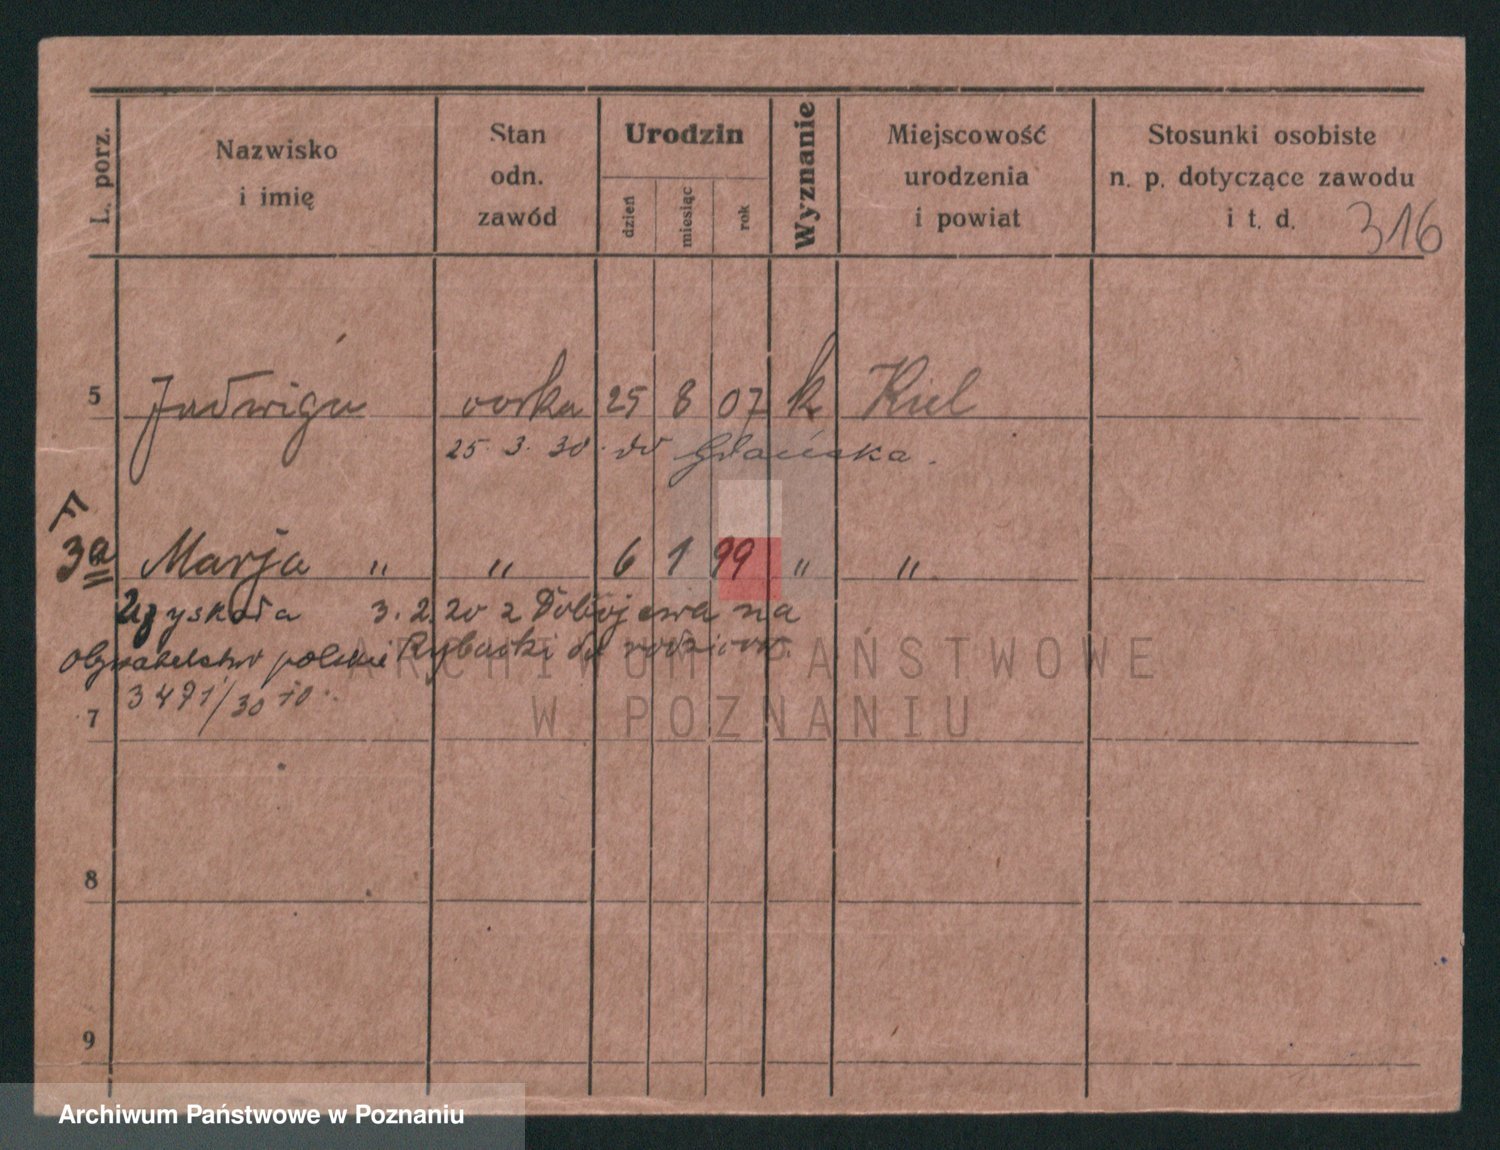 L. porz.
Nazwisko
i imię
Stan
odn.
zawód
Urodzin
dzień
miesiąc
rok
Wyznanie
Miejscowość
urodzenia
i powiat
Stosunki osobiste
n. p. dotyczące zawodu
i t. d.
316
5 Jadwiga córka 25 8 07 k Kiel
25. 3. 30. do Gdańska.
3a Marja " " 6 1 99 " "
Uzyskała 3. 2. 20 z na
Obywatelstwo polskie Rybacki do rodziców.
3471/30 10.
7
8
9
ARCHIWUM PAŃSTWOWE
W POZNANIU
Archiwum Państwowe w Poznaniu